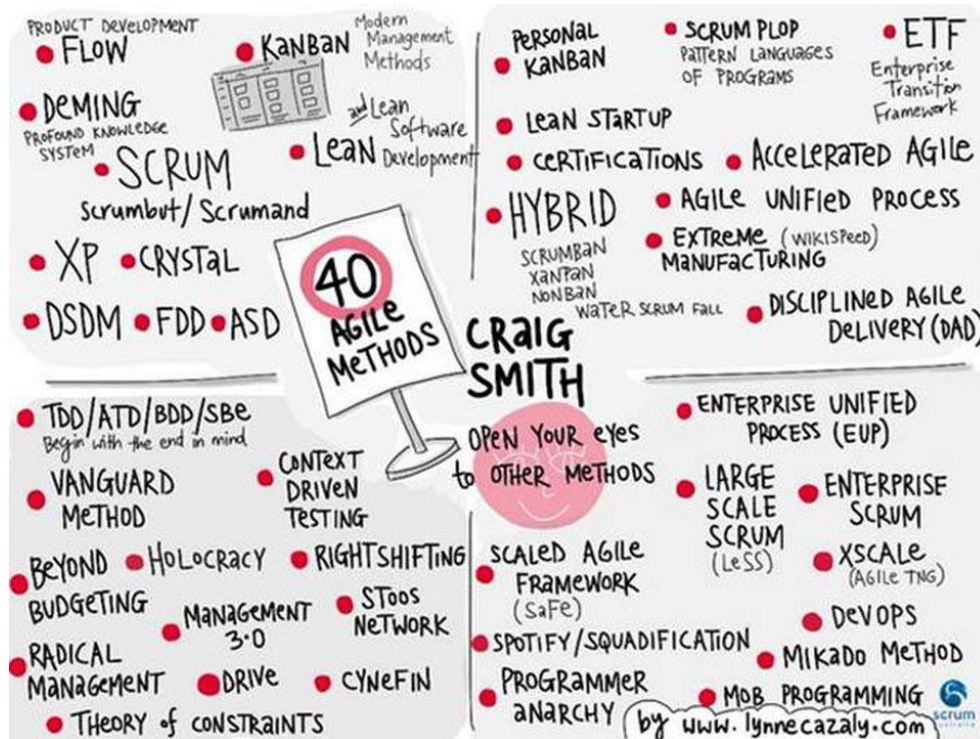 PRODUCT DEVELOPMENT
FLOW
KANBAN
Modern
Management
Methods
DEMING
PROFOUND KNOWLEDGE
SYSTEM
and Lean
Software
Development
LEAN
SCRUM
Scrumbut/Scrumand
XP
CRYSTAL
DSDM
FDD
ASD
PERSONAL
KANBAN
SCRUM PLOP
PATTERN LANGUAGES
OF PROGRAMS
ETF
Enterprise
Transition
Framework
LEAN STARTUP
CERTIFICATIONS
ACCELERATED AGILE
HYBRID
SCRUMBAN
XANPAN
NONBAN
WATER SCRUM FALL
AGILE UNIFIED PROCESS
EXTREME (WIKISPEED)
MANUFACTURING
DISCIPLINED AGILE
DELIVERY (DAD)
40
AGILE
METHODS
CRAIG
SMITH
OPEN YOUR EYES
to OTHER METHODS
TDD/ATD/BDD/SBE
Begin with the end in mind
VANGUARD
METHOD
CONTEXT
DRIVEN
TESTING
BEYOND
BUDGETING
HOLOCRACY
RIGHTSHIFTING
MANAGEMENT
3.0
STOOS
NETWORK
RADICAL
MANAGEMENT
DRIVE
CYNEFIN
THEORY of CONSTRAINTS
ENTERPRISE UNIFIED
PROCESS (EUP)
LARGE
SCALE
SCRUM
(LeSS)
ENTERPRISE
SCRUM
SCALED AGILE
FRAMEWORK
(SAFe)
XSCALE
(AGILE TNG)
DEVOPS
SPOTIFY/SQUADIFICATION
MIKADO METHOD
PROGRAMMER
ANARCHY
MOB PROGRAMMING
by www.lynnecazaly.com
scrum